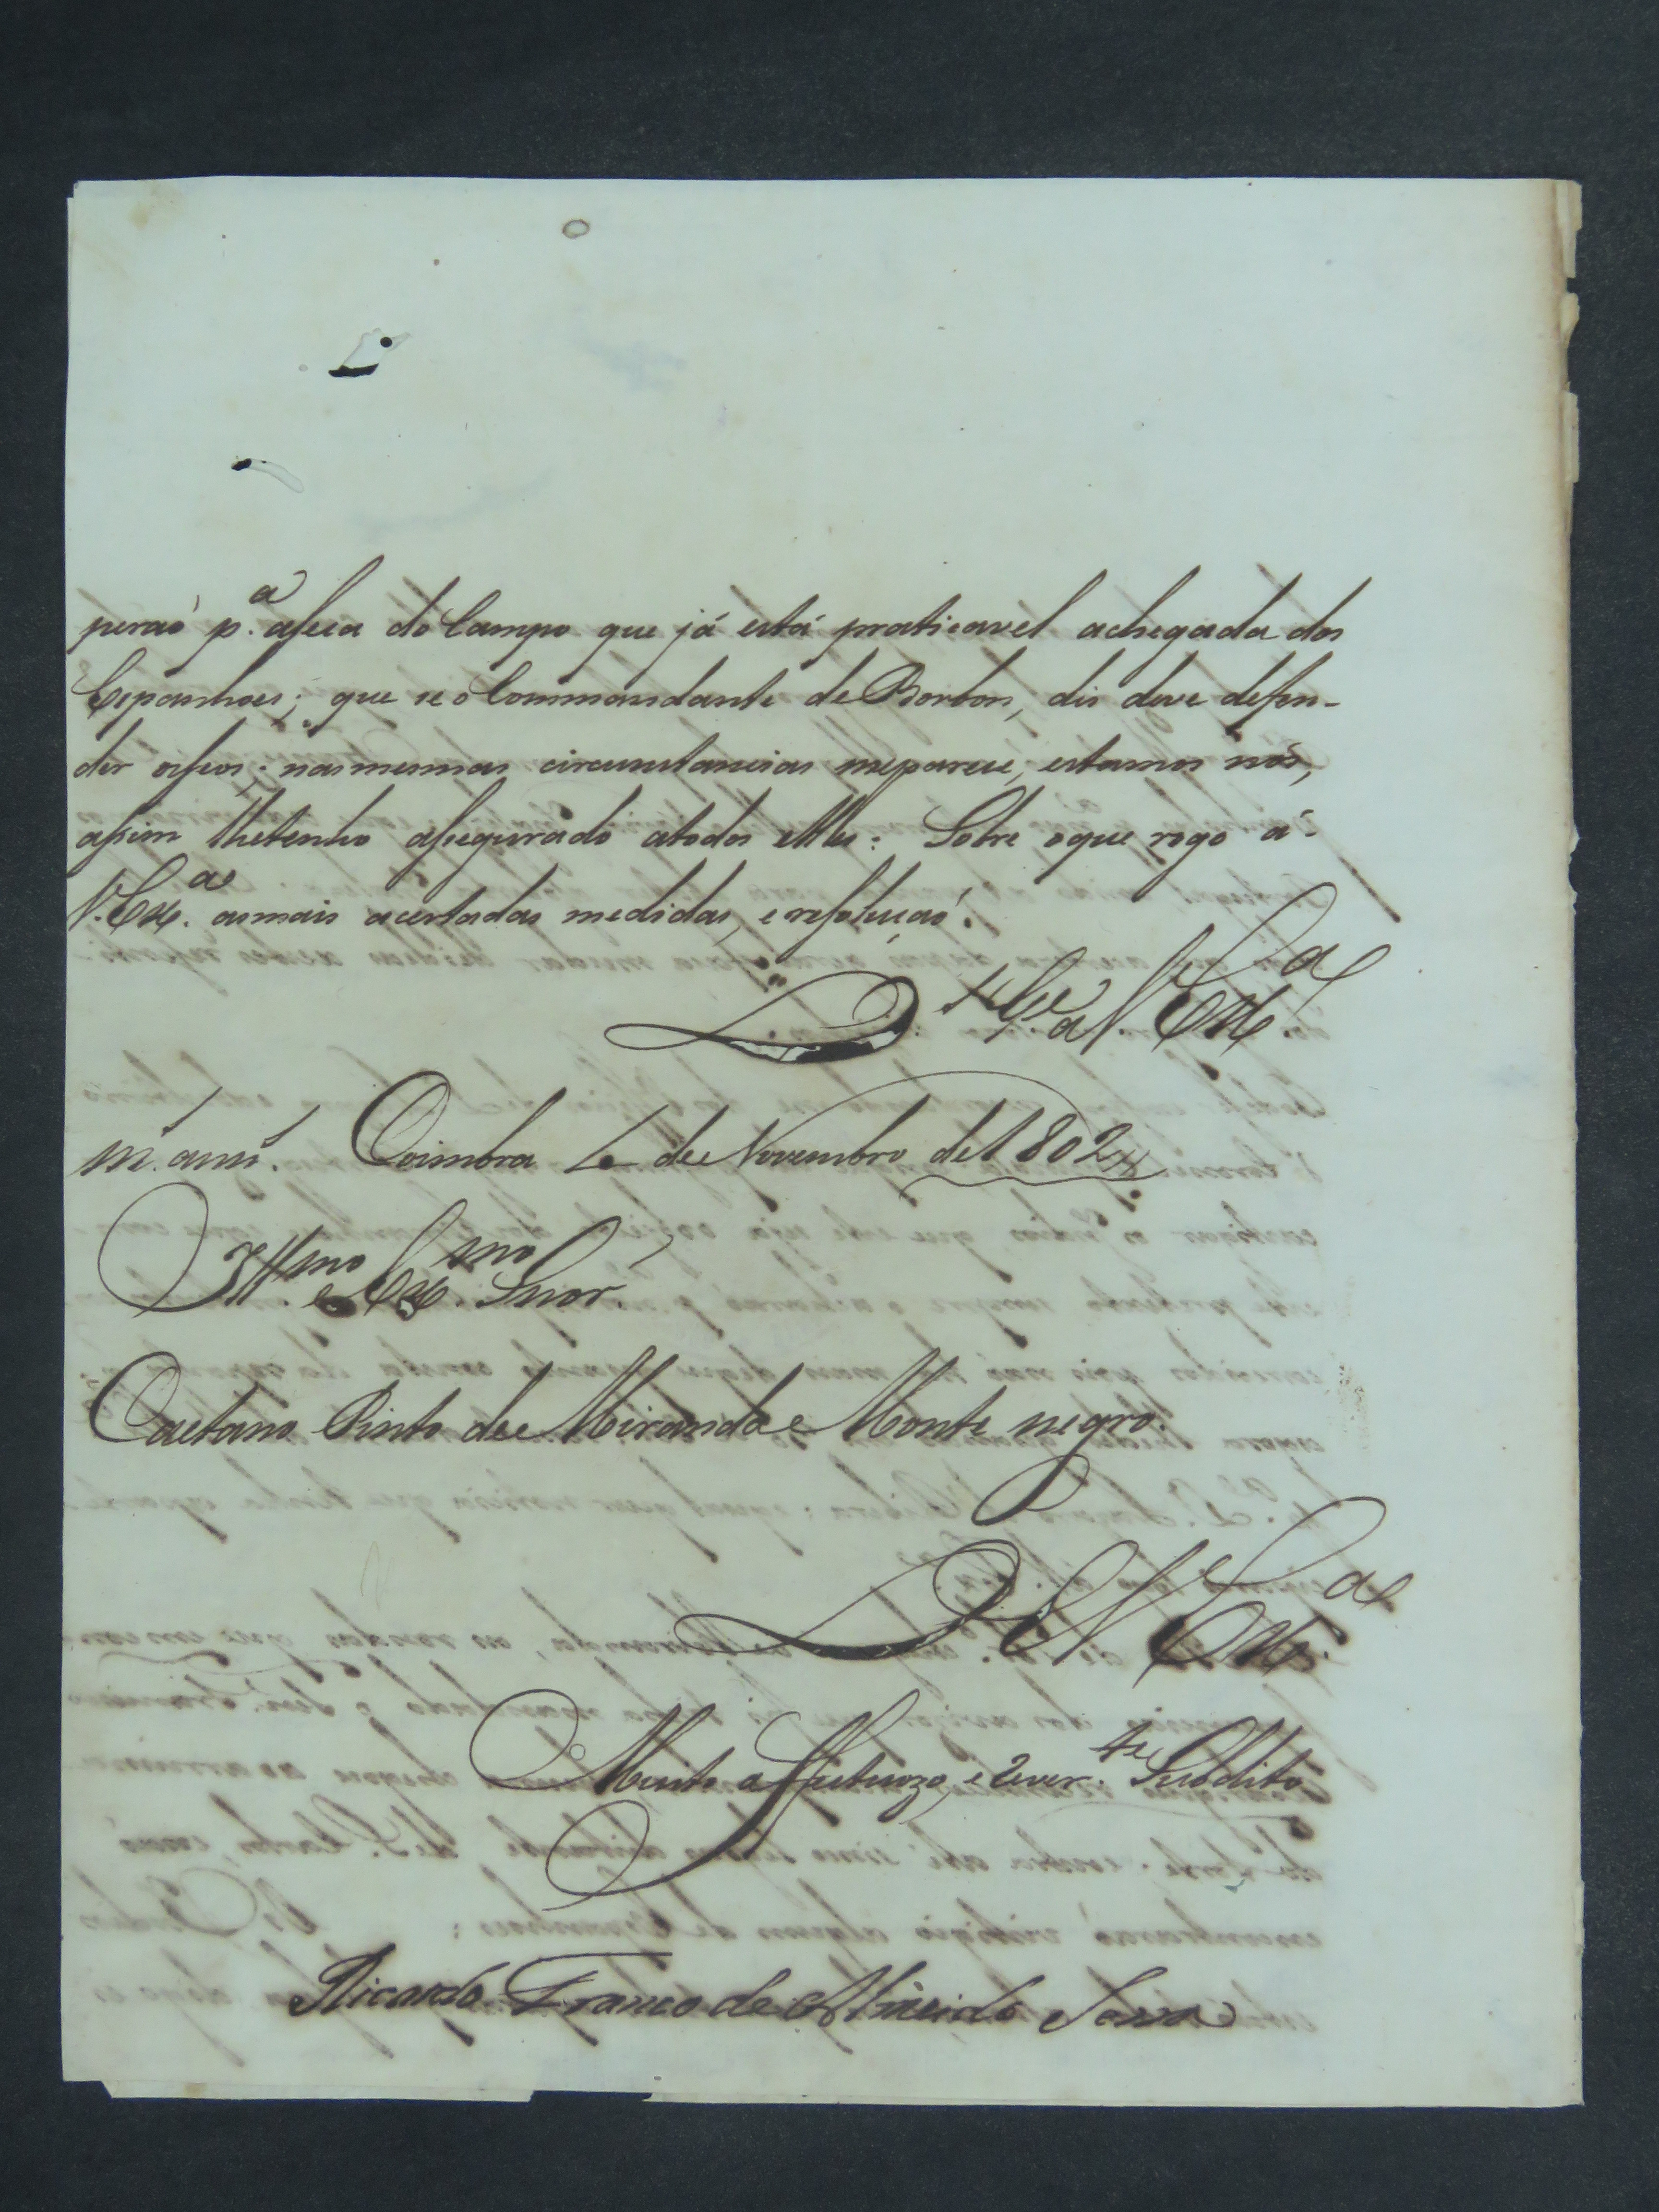 peraõ p.ª aseca do Campo que já está praticavel achegada dos
Espanhoes; que se o Commandante de Borbon, dis deve defen-
der osseos; nas mesmas circunstancias meparece, estamos nós,
assim lhetenho assegurado atodos elles: Sobre oque rogo á
V. Ex.ª asmais acertadas medidas, e resoluçaõ.
D.s g.e a V. Ex.ª
m. ann. Coimbra de Novembro de 1802
Ill.mo e Ex.mo Snor
Caetano Pinto de Miranda e Monte negro.
De V. Ex.ª
Muito affectuozo, e rever.te Subdito
Ricardo Franco de Almeida Serra